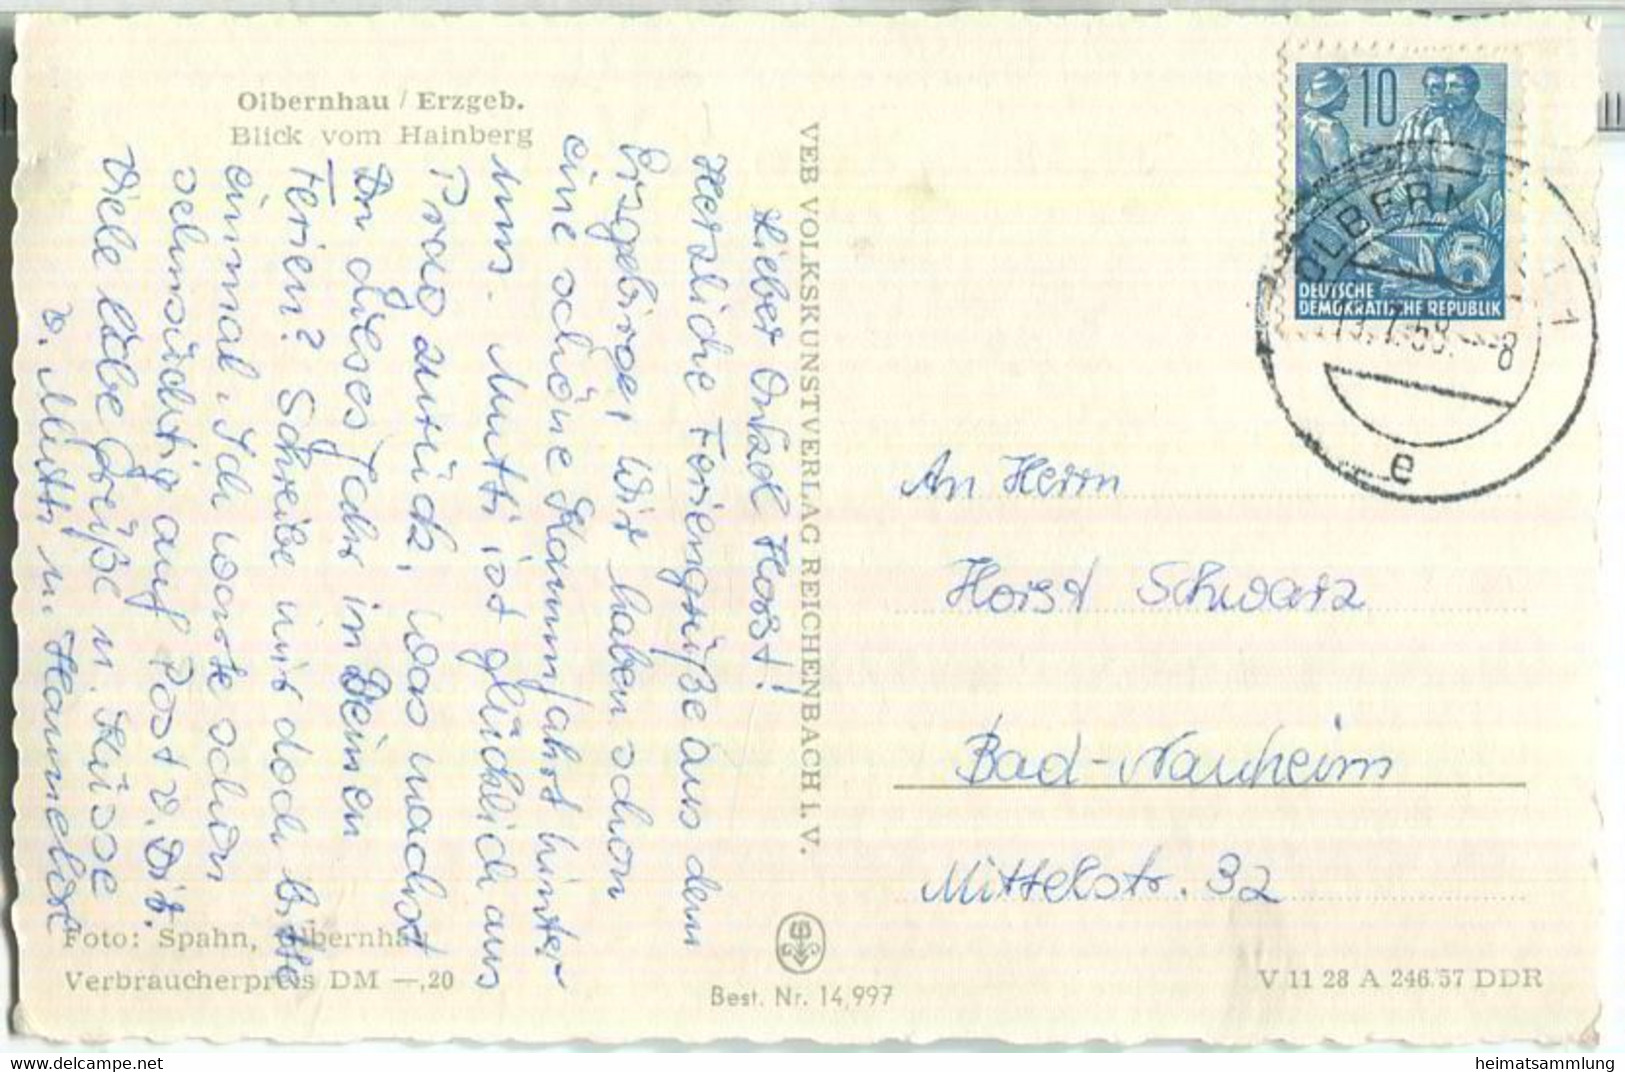 Olbernhau / Erzgeb.
Blick vom Hainberg
Lieber Onkel Horst!
Herzliche Feriengrüße aus dem
Erzgebirge, wir haben schon
eine schöne Kammfahrt hinter
uns. Mutti ist glücklich aus
Prag zurück, was machst
Du dieses Jahr in Deinen
Ferien? Schreibe mir doch bitte
einmal. Ich warte schon
sehnsüchtig auf Post v. Dir.
Viele liebe Grüße u. Küsse
v. Mutti u. Hannelore
Foto: Spahn, Olbernhau
Verbraucherpreis DM —,20
VEB VOLKSKUNSTVERLAG REICHENBACH i. V.
Best. Nr. 14,997
10
5
DEUTSCHE
DEMOKRATISCHE REPUBLIK
OLBERN
13.7.58. 8
11
e
An Herrn
Horst Schwarz
Bad-Nauheim
Mittelstr. 32
V 11 28 A 246.57 DDR
https://www.delcampe.net
heimatsammlung